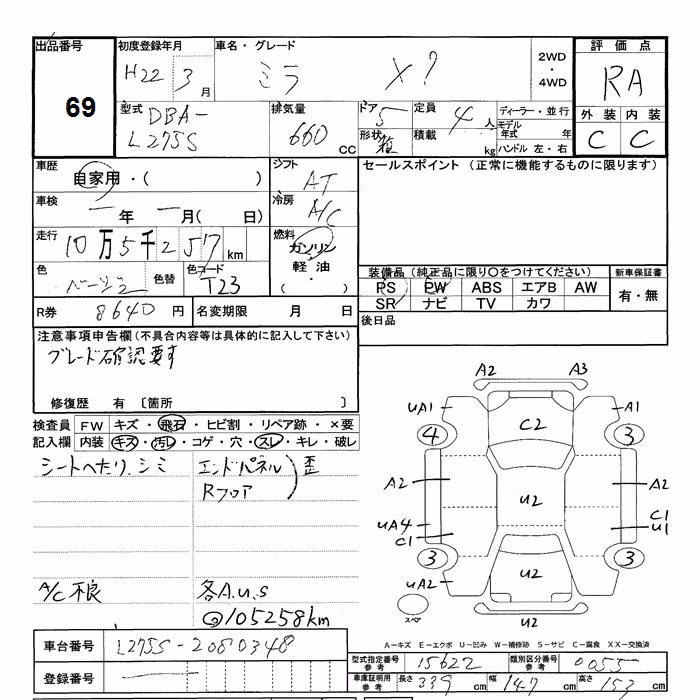 出品番号
69
初度登録年月
H22 3月
車名・グレード
ミラ X?
2WD
・
4WD
評価点
RA
型式
DBA-
L275S
排気量
660 CC
ドア 5
形状 箱
定員 4人
積載 kg
ディーラー・並行
モデル年式 年
ハンドル 左・右
外装 内装
C C
車歴
自家用・( )
シフト
AT
セールスポイント (正常に機能するものに限ります)
車検
一年 一月( 日)
冷房
A/C
走行
10万5千257km
燃料
ガソリン
軽油・
( )
色
ベージュ2
色替
色コード
T23
装備品(純正品に限り○をつけてください)
新車保証書
PS PW ABS エアB AW
有・無
SR ナビ TV カワ
R券 8640円
名変期限 月 日
後日品
注意事項申告欄(不具合内容等は具体的に記入して下さい)
グレード確認要す
修復歴 有 〔箇所 〕
検査員 FW キズ・飛石・ヒビ割・リペア跡・×要
記入欄 内装 キズ・汚レ・コゲ・穴・スレ・キレ・破レ
シートへたり、シミ
エンドパネル
Rフロア
歪
A/C不良
各A.U.S
@105258km
A2 A3
UA1 A1
C2
4 3
A2 U2 A2
UA4 C1
C1 U1
3 3
UA2 U2
スペア
U2
A-キズ E-エクボ U-凹み W-補修跡 S-サビ C-腐食 XX-交換済
車台番号 L275S-2080348
型式指定番号 参考 15622
類別区分番号 参考 0055
登録番号
車庫証明用 参考 長さ 339cm 幅 147cm 高さ 153cm